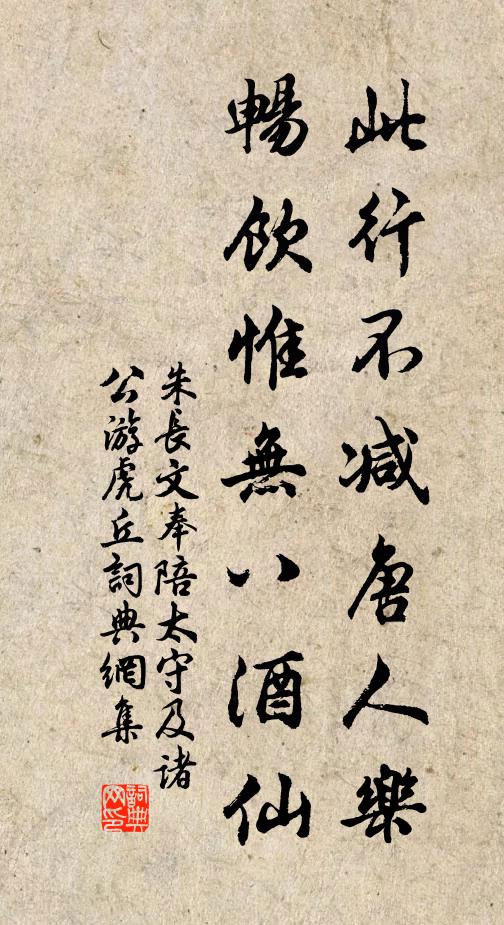 此行不減唐人樂
暢飲惟無八酒仙
朱長文奉陪太守及諸
公游虎丘詞典網集
詞典網印